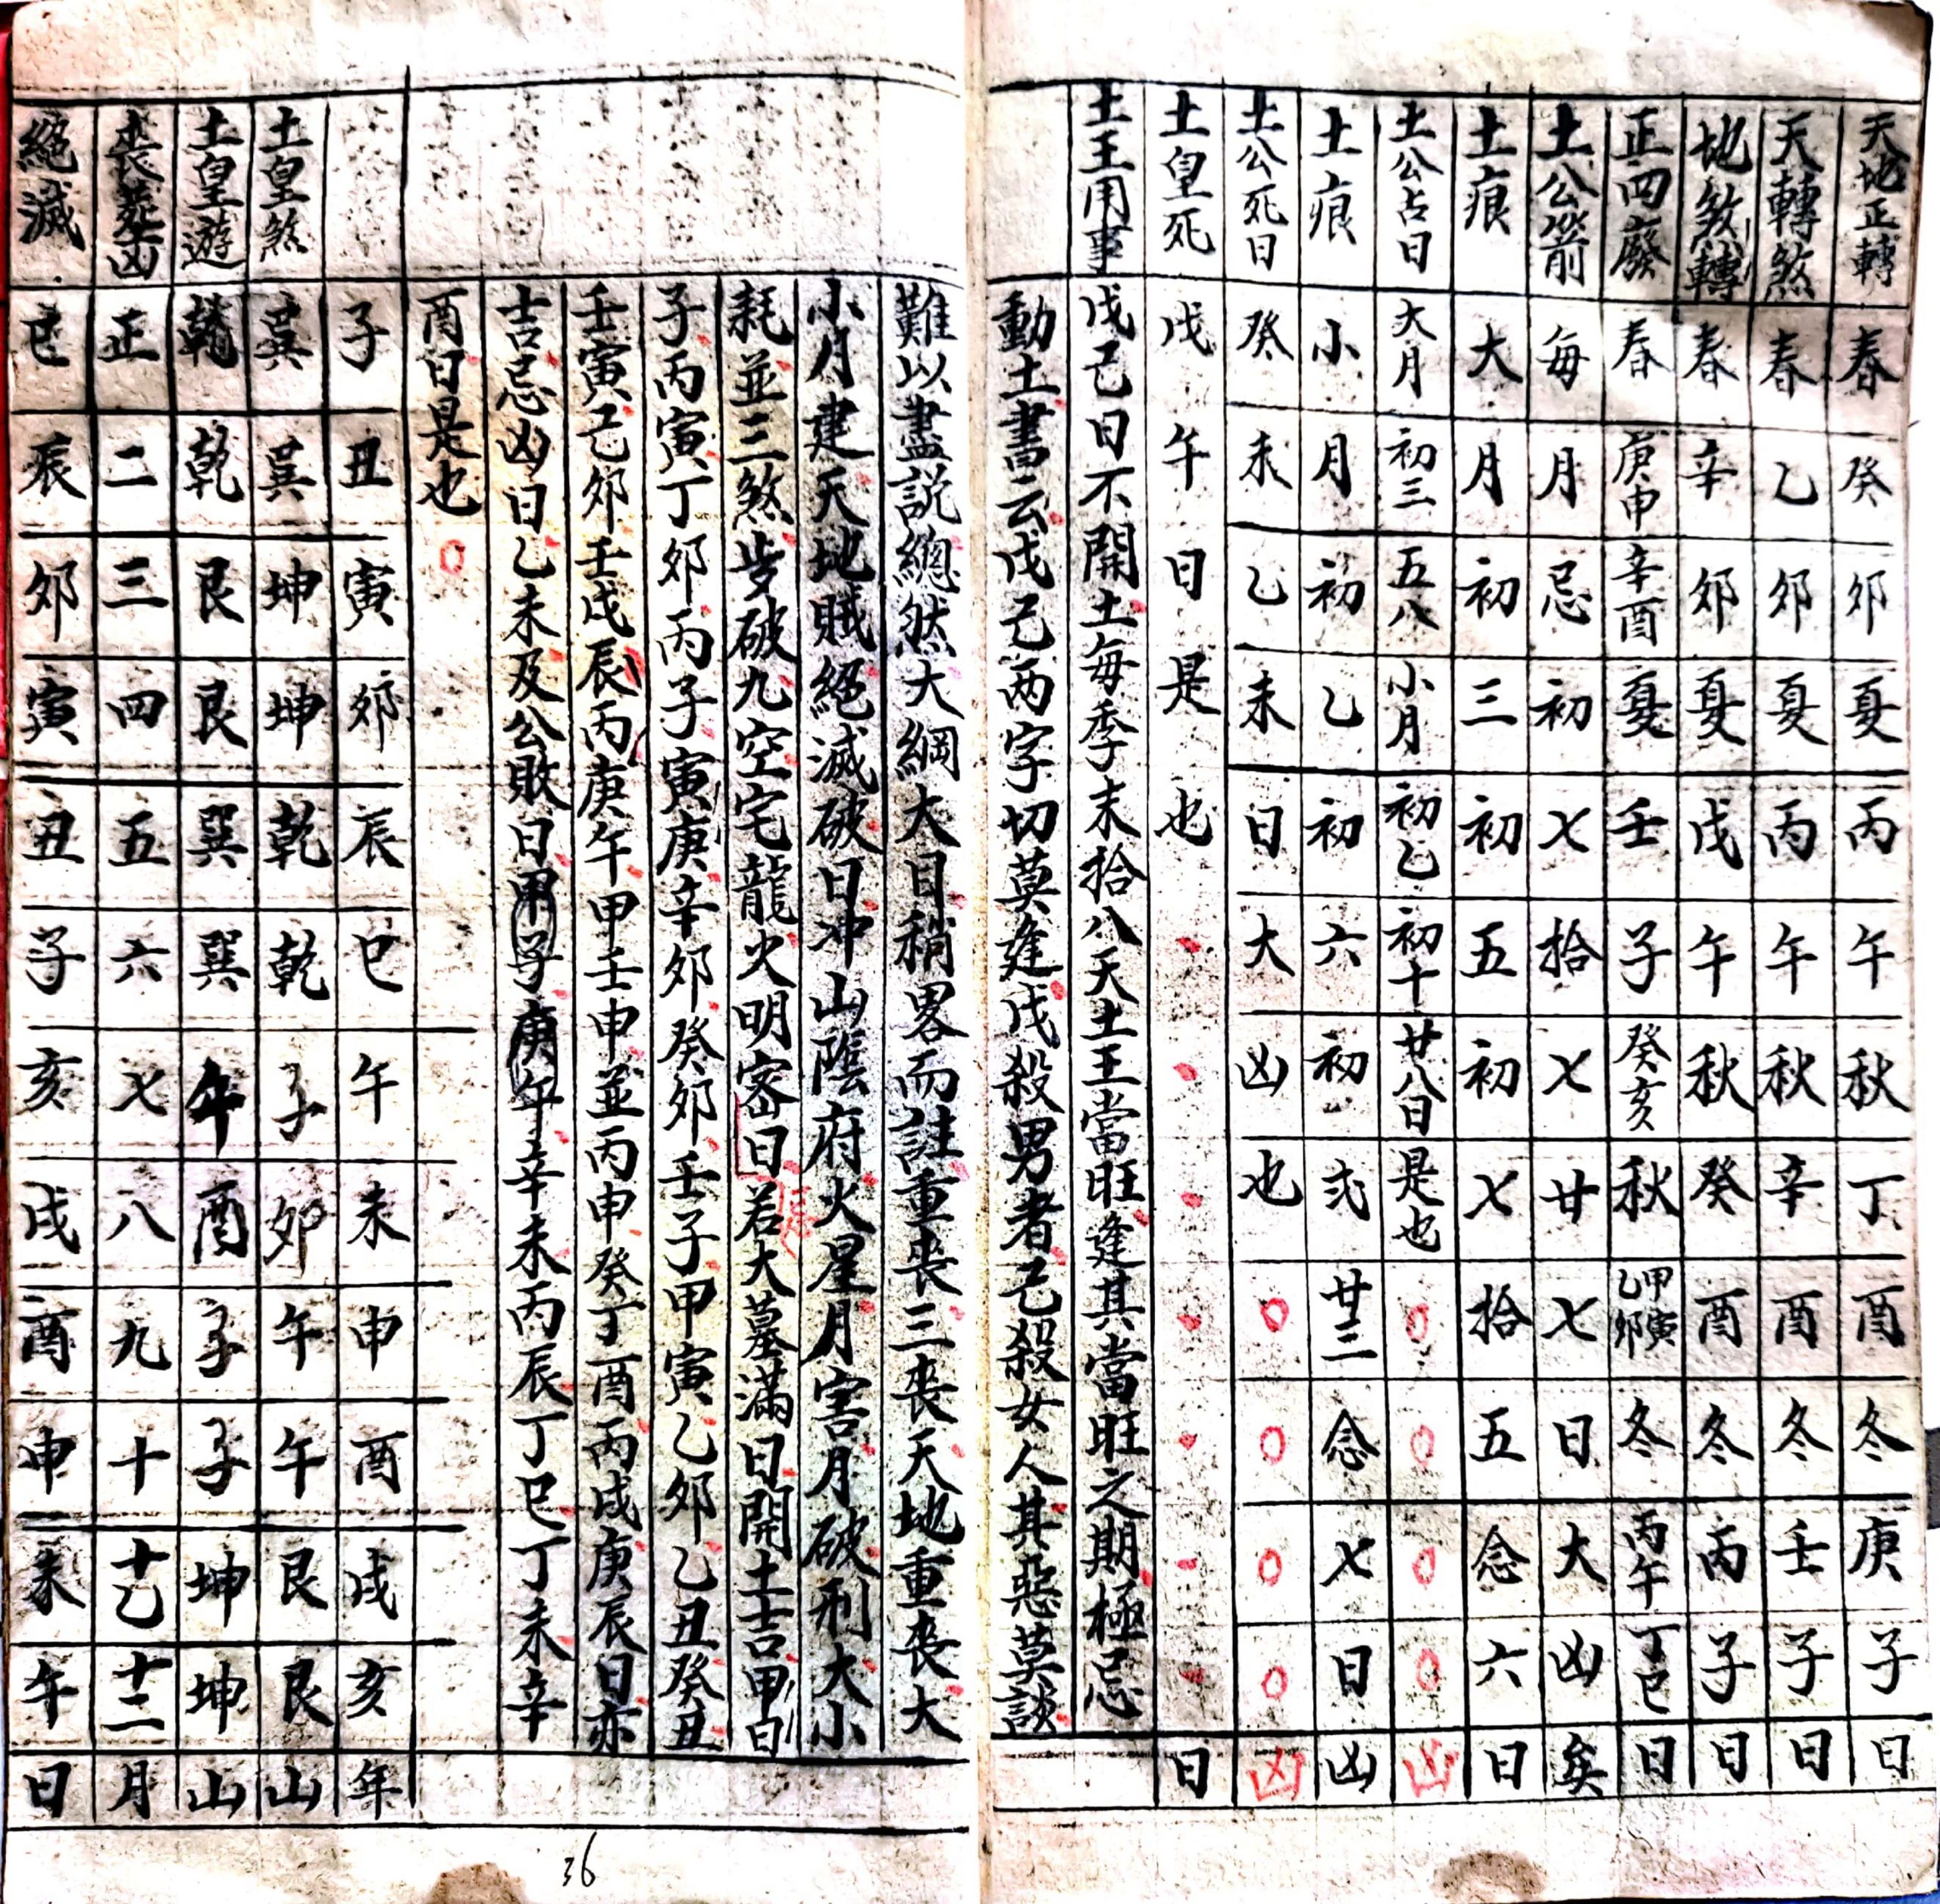 天地正轉 春 癸 卯 夏 丙 午 秋 丁 酉 冬 庚 子 日
天轉煞 春 乙 卯 夏 丙 午 秋 辛 酉 冬 壬 子 日
地煞轉 春 辛 卯 夏 戊 午 秋 癸 酉 冬 丙 子 日
正四廢 春 庚申 辛酉 夏 壬 子 癸亥 秋 甲寅乙卯 冬 丙午 丁巳 日
土公箭 每 月 忌 初 七 拾 七 廿 七 日 大 凶 矣
土痕 大 月 初 三 初 五 初 七 拾 五 念 六 日
土公占日 大月 初三 五八 小月 初乙 初十 廿八日 是也 凶
土痕 小 月 初 乙 初 六 初 弍 廿二 念 七 日 凶
土公死日 癸 未 乙 未 日 大 凶 也 凶
土皇死 戊 午 日 是 也 日
土王用事 戊己日不開土每季末拾八天土王當旺逢其當旺之期極忌
動土書云戊己两字切莫逢戊殺男者己殺女人其惡莫談
難以盡説總然大綱大日稍畧而註重丧三丧天地重丧大
小月建天地賊絕滅破日冲山隂府火星月害月破刑大小
耗並三煞歩破九空宅龍火明密日若大墓滿日開土吉甲日
子丙寅丁卯丙子寅庚辛卯癸卯壬子甲寅乙卯乙丑癸丑
壬寅己卯壬戌辰丙庚午甲壬申並丙申癸丁酉丙戌庚辰日亦
吉忌凶日乙未及公敗日甲子庚午辛未丙辰丁巳丁未辛
酉日是也
子 丑 寅 卯 辰 巳 午 未 申 酉 戌 亥 年
土皇煞 巽 巽 坤 坤 乾 乾 子 卯 午 午 艮 艮 山
土皇遊 乾 乾 艮 艮 巽 巽 午 酉 子 子 坤 坤 山
丧葬凶 正 二 三 四 五 六 七 八 九 十 十乙 十二 月
絕滅 巳 辰 卯 寅 丑 子 亥 戌 酉 申 未 午 日
36